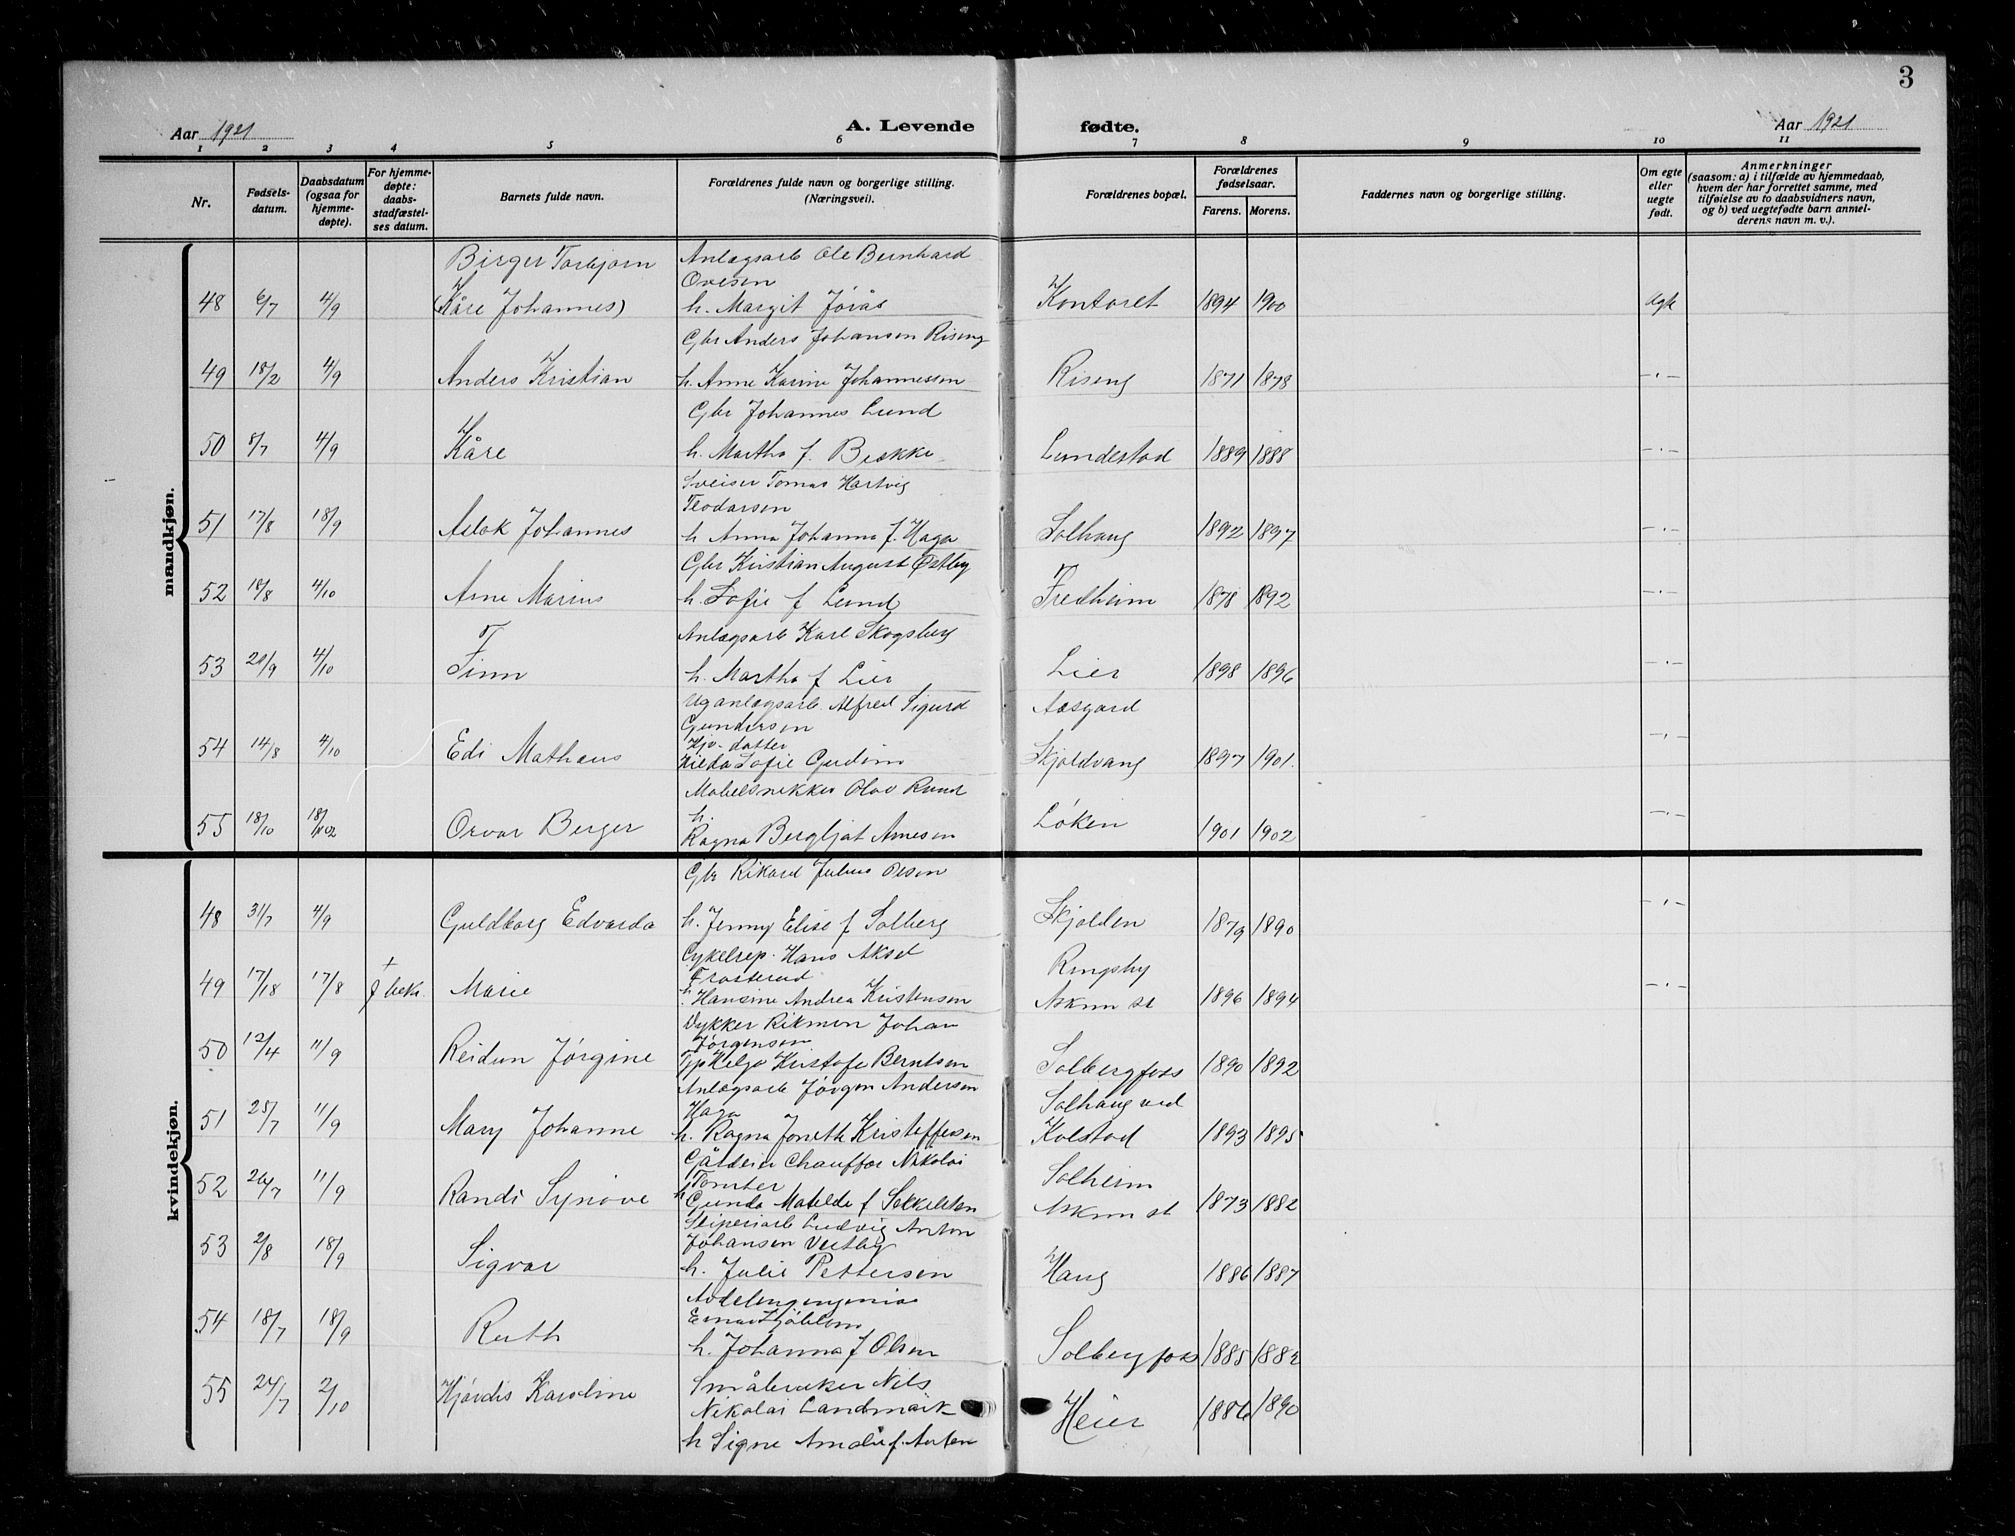 3
Aar 1921
A. Levende fødte.
Aar 1921
1 2 3 4 5 6 7 8 9 10 11
Nr.
Fødsels-
datum.
Daabsdatum
(ogsaa for
hjemme-
døpte).
For hjemme-
døpte:
daabs-
stadfæstel-
ses datum.
Barnets fulde navn.
Forældrenes fulde navn og borgerlige stilling.
(Næringsvei).
Forældrenes bopæl.
Forældrenes
fødselsaar.
Farens. Morens.
Faddernes navn og borgerlige stilling.
Om egte
eller
uegte
født.
Anmerkninger
(saasom: a) i tilfælde av hjemmedaab,
hvem der har forrettet samme, med
tilføielse av to daabsvidners navn,
og b) ved uegtefødte barn anmel-
derens navn m. v.).
mandkjøn.
Birger Torbjørn Anlægsarb Ole Bernhard
Ovesen
48 6/7 4/9 (Kåre Johannes) h. Margit Jørås Kontoret 1894 1900
Gbr Anders Johansen Riseng
49 18/2 4/9 Anders Kristian h. Anne Karine Johannessen Riseng 1871 1878 -"-
Gbr Johannes Lund
50 8/7 4/9 Kåre h. Martha f. Brække Lundestad 1889 1888 -"-
Sveiser Tomas Hartvig
Teodorsen
51 17/8 18/9 Aslak Johannes h Anna Johanna f. Haga Solhaug 1892 1897 -"-
Gbr Kristian August Østby
52 18/8 4/10 Arne Marius h. Sofie f Lund Fredheim 1878 1892 -"-
Anlægsarb Karl Skogsberg
53 20/9 4/10 Finn h. Martha f Lier Lier 1898 1896 -"-
Ug anlægsarb Alfred Sigurd Aasgard
Gundersen
Hjv-datter
54 14/8 4/10 Edi Matheus Hilda Sofie Gudim Skjoldvang 1897 1901. -"-
Møbelsnekker Olav Rund
h.
55 18/10 Orvar Berger Ragna Bergljot Arnesen Løken 1901 1902 -"-
kvindekjøn.
Gbr Rikard Julius Olsen
48 31/7 4/9 Guldborg Edvarda h. Jenny Elise f Solberg Skjolden 1879 1890 -"-
Cykelrep. Hans Aksel Ringsby
Frøsterud
49 17/18 17/8 + Marie h. Hansine Andrea Kristensen Askim st 1896 1894 -"-
Dykker Rikmon Johan
Jørgensen
50 12/4 11/9 Reidun Jørgine Helga Kristofa Berntsen Solbergfoss 1890 1892
Anlægsarb Jørgen Andersen Solhaug ved
Haga
51 25/7 11/9 Mary Johanne h. Ragna Jonette Kristoffersen Kolstad 1893 1895
Gårdeier Chauffør Nikolai Solheim
Tomter
52 26/7 11/9 Randi Synøve h Gunda Matilde f Sekkelsten Askim st 1873 1882
Sliperiarb Ludvig Anton
Johansen Vestby
53 2/8 18/9 Sigvor h. Julie Pettersen Haug 1886 1887
Avdelingsingeniør
Einar
54 18/7 18/9 Ruth h. Johanna f Olsen Solbergfoss 1885 1882
Småbruker Nils
55 24/7 2/10 Hjørdis Karoline Nikolai Landmark Heier 1886 1890
h Signe